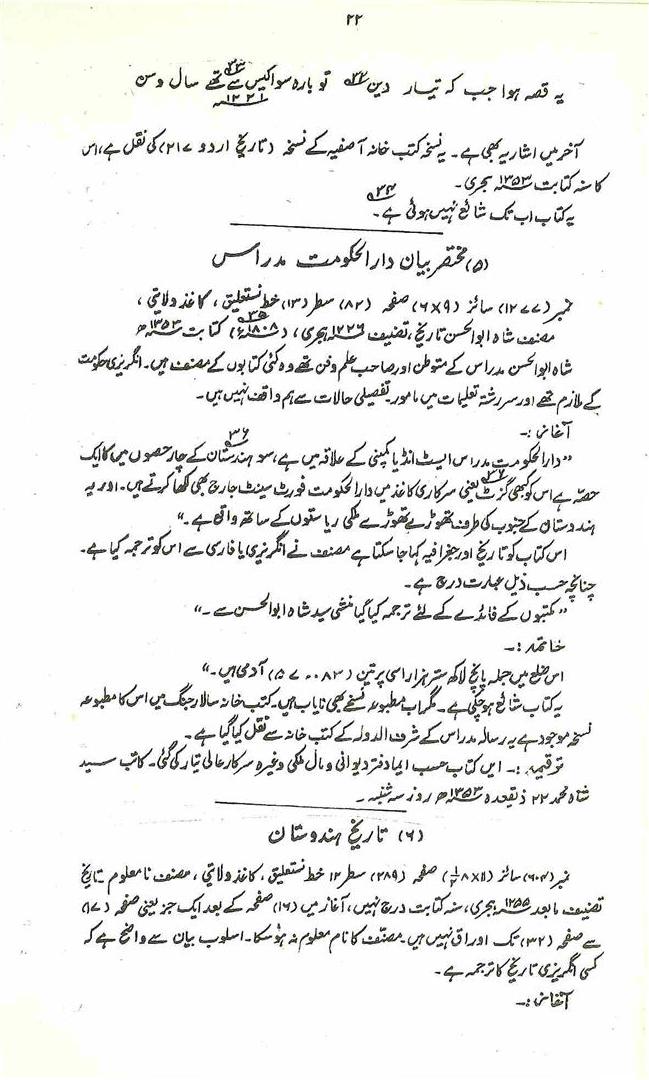 ۲۲
یہ قصہ ہوا جب کہ تیسار دین ۳۲ تو بارہ سو اکیس ۳۳ سے تھے سال و سن
۱۲۲۱
آخر میں اشاریہ بھی ہے۔ یہ نسخہ کتب خانہ آصفیہ کے نسخہ (تاریخ اردو ۲۱۷) کی نقل ہے، اس
کا سنہ کتابت ۱۳۵۳ ہجری۔
یہ کتاب اب تک شائع نہیں ہوئی ہے۔ ۳۴
(۵) مختصر بیان دارالحکومت مدراس
نمبر (۱۲۷۷) سائز (۹×۶) صفحہ (۸۲) سطر (۱۳) خط نستعلیق، کاغذ ولایتی،
مصنف شاہ ابوالحسن تاریخ، تصنیف ۱۲۲۶ ہجری، ۳۵ (۱۸۰۸ء) کتابت ۱۳۵۳ھ
شاہ ابوالحسن مدراس کے متوطن اور صاحب علم و فن تھے وہ کئی کتابوں کے مصنف ہیں۔ انگریزی حکومت
کے ملازم تھے اور سررشتہ تعلیمات میں مامور۔ تفصیلی حالات سے ہم واقف نہیں ہیں۔
آغاز:۔
"دارالحکومت مدراس ایسٹ انڈیا کمپنی کے علاقہ میں ہے، سو ۳۶ ہندستان کے چار حصوں میں کا ایک
حصہ ہے اس کو کبھی گزٹ ۳۷ یعنی سرکاری کاغذ میں دارالحکومت فورٹ سینٹ جارج بھی لکھا کرتے ہیں۔ اور یہ
ہندوستان کے جنوب کی طرف تھوڑے تھوڑے ملکی ریاستوں کے ساتھ واقع ہے۔"
اس کتاب کو تاریخ اور جغرافیہ کہا جا سکتا ہے مصنف نے انگریزی یا فارسی سے اس کو ترجمہ کیا ہے۔
چنانچہ حسب ذیل عبارت درج ہے۔
"مکتبوں کے فائدے کے لئے ترجمہ کیا گیا منشی سید شاہ ابوالحسن سے۔"
خاتمہ:۔
اس ضلع میں جملہ پانچ لاکھ ستر ہزار اسی پر تین (۵۷۰۰۸۳) آدمی ہیں۔"
یہ کتاب شائع ہو چکی ہے۔ مگر اب مطبوعہ نسخے بھی نایاب ہیں۔ کتب خانہ سالار جنگ میں اس کا مطبوعہ
نسخہ موجود ہے یہ رسالہ مدراس کے شرف الدولہ کے کتب خانہ سے نقل کیا گیا ہے۔
توقیمہ:۔ ایں کتاب حسب ایماد فتر دیوانی و مال ملکی وغیرہ سرکار عالی تیار کی گئی۔ کاتب سید
شاہ محمد ۲۲ ذیقعدہ ۱۳۵۳ھ روز سہ شنبہ۔
(۶) تاریخ ہندوستان
نمبر (۶۰۴) سائز (۱۱×۸ ۱/۲) صفحہ (۲۸۹) سطر ۱۲ خط نستعلیق، کاغذ ولایتی، مصنف نامعلوم تاریخ
تصنیف مابعد ۱۲۵۵ ہجری، سنہ کتابت درج نہیں، آغاز میں (۱۶) صفحہ کے بعد ایک جز یعنی صفحہ (۱۷)
سے صفحہ (۳۲) تک اوراق نہیں ہیں۔ مصنف کا نام معلوم نہ ہو سکا۔ اسلوب بیان سے واضح ہے کہ
کسی انگریزی تاریخ کا ترجمہ ہے۔
آغاز:۔